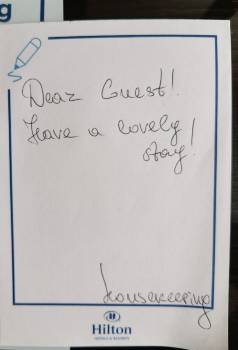 g
Dear Guest!
Have a lovely
stay!
housekeeping
Hilton
HOTELS & RESORTS